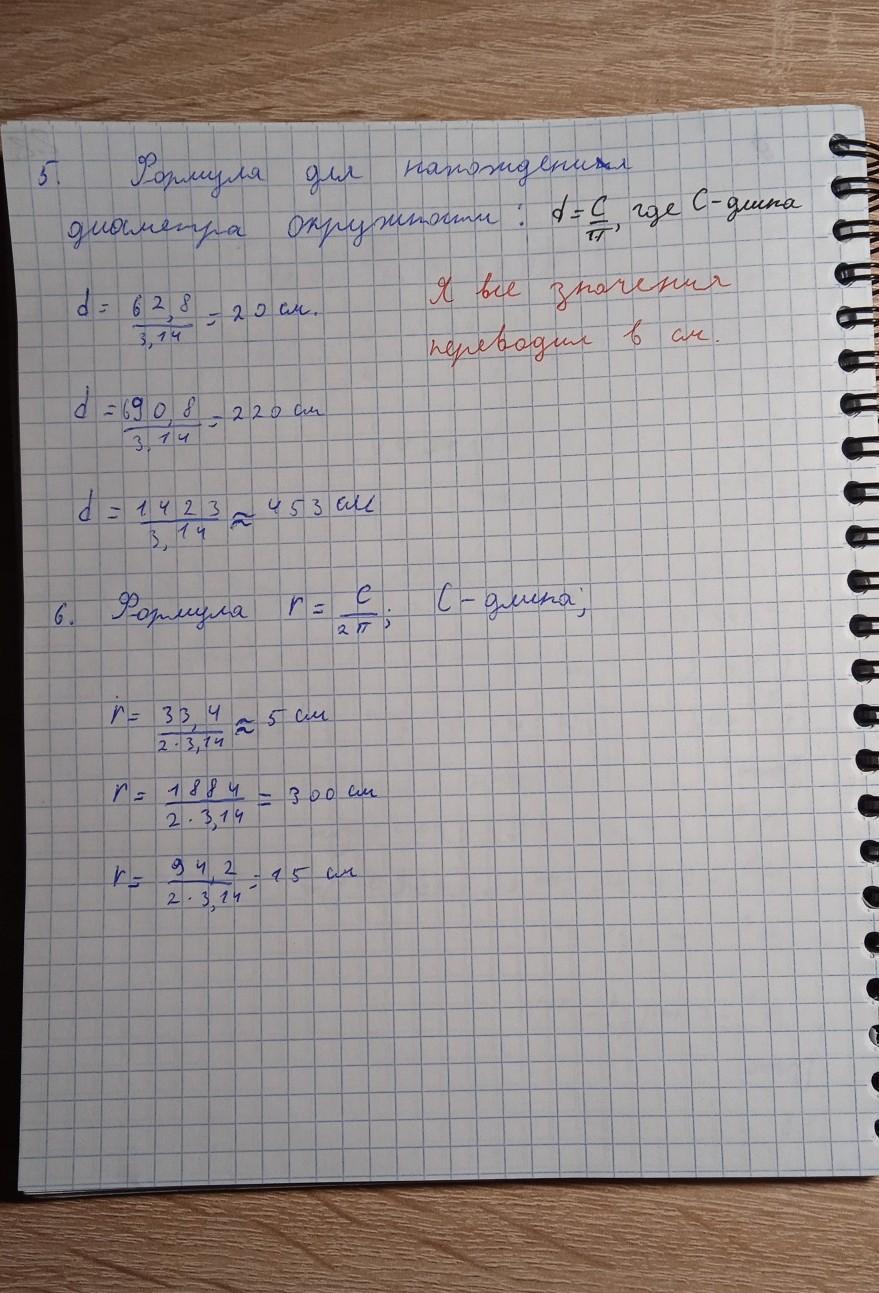 5. Формула для нахождения
диаметра окружности: d = C/π, где C - длина
d = 62,8/3,14 = 20 см.
Я все значения
переводил в см.
d = 690,8/3,14 = 220 см
d = 1423/3,14 ≈ 453 см
6. Формула r = C/2π; C - длина;
r = 33,4/2·3,14 ≈ 5 см
r = 1884/2·3,14 = 300 см
r = 94,2/2·3,14 = 15 см